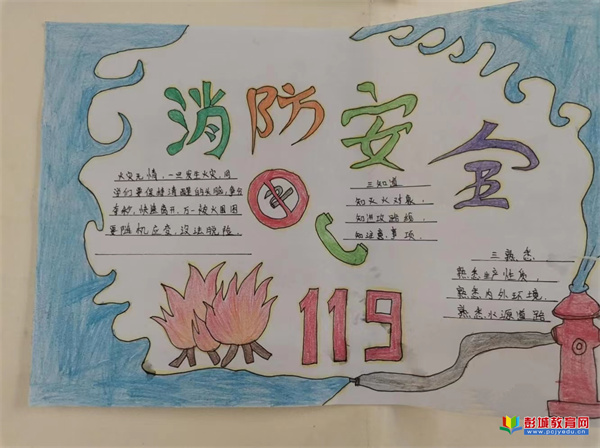 消防安全
火灾无情，一旦发生火灾，同
学们要保持清醒的头脑，争分
夺秒，快速离开，万一被火围困
要随机应变，设法脱险。
三知道
知灭火对象，
知进攻路线，
知注意事项。
三熟悉
熟悉生产性质，
熟悉内外环境，
熟悉水源道路
119
彭城教育网
www.pcjyedu.com